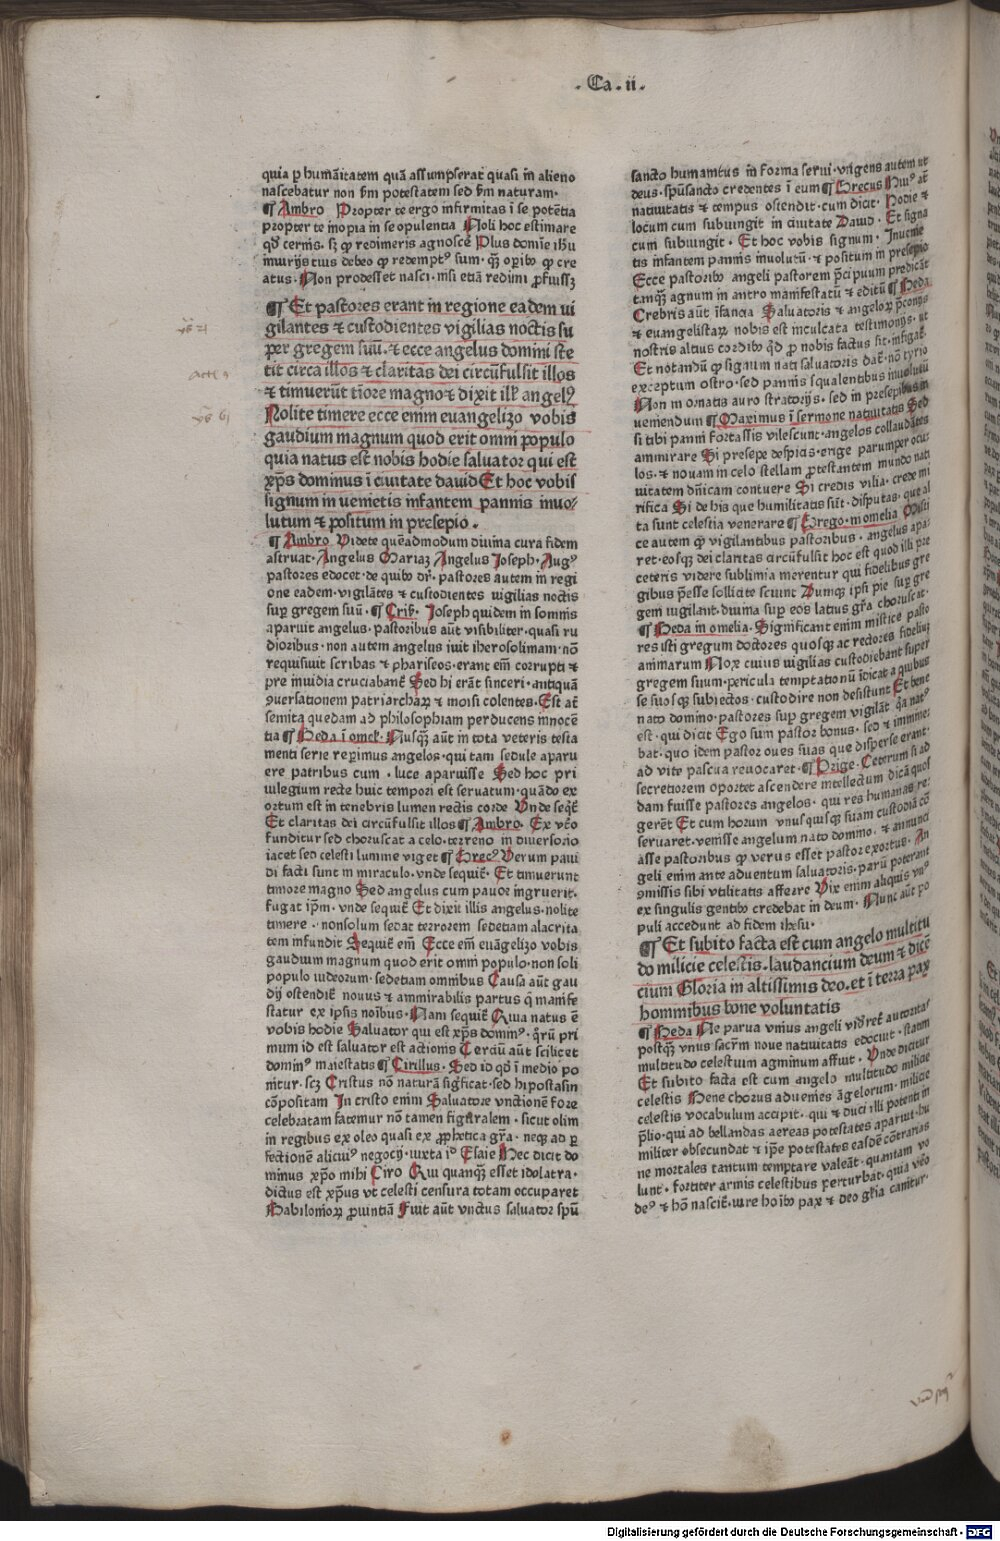 . Ca . ii .
quia ꝑ humāitatem quā assumpserat quasi in alieno
nascebatur non ẜm potestatem sed ẜm naturam ·
¶ Ambro Propter te ergo infirmitas ī se potētia
propter te inopia in se opulentia Noli hoc estimare
qd̕ cernis · sꝫ ꝙ redimeris agnosce Plus domīe ihū
iniurijs tuis debeo ꝙ redemptꝰ sum · qꝫ oꝑibꝰ ꝙ cre
atus · Non prodesset nasci · nisi etiā redimi ꝓfuissꝫ
¶ Et pastores erant in regione eadem ui
gilantes ⁊ custodientes vigilias noctis su
per gregem suū · ⁊ ecce angelus domini ste
tit circa illos ⁊ claritas dei circūfulsit illos
⁊ timuerūt tiore magno ⁊ dixit ill̕ angelꝰ
Nolite timere ecce enim euangelizo vobis
gaudium magnum quod erit omni populo
quia natus est nobis hodie saluator qui est
xp̄s dominus ī ciuitate dauid Et hoc vobis
signum inuenietis infantem pannis inuo⸗
lutum ⁊ positum in presepio .
¶ Ambro Videte quēadmodum diuina cura fidem
astruat · Angelus Mariaꝫ Angelus Joseph · Augꝰ
pastores edocet · de quibꝰ dr̄ · pastores autem in regi
one eadem · vigilātes ⁊ custodientes uigilias noctis
suꝑ gregem suū · ¶ Cris̄ · Joseph quidem in somnis
aparuit angelus · pastoribus aūt visibiliter · quasi ru
dioribus · non autem angelus iuit iherosolimam · nō
requisiuit scribas ⁊ phariseos · erant em̄ corrupti ⁊
pre inuidia cruciabant̕ Sed hi erāt sinceri · antiquā
ꝯuersationem patriarchaꝝ ⁊ moisi colentes · Est at̄
semita quedam ad philosophiam perducens innocē
tia ¶ Beda ī omel̕ · Nusqꝫ aūt in tota veteris testa
menti serie reperimus angelos · qui tam sedule aparu
ere patribus cum · luce aparuisse Sed hoc pri
uilegium recte huic tempori est seruatum · quādo ex
ortum est in tenebris lumen rectis corde Vnde seqt̕
Et claritas dei circūfulsit illos ¶ Ambro · Ex vtō
funditur sed choruscat a celo · terreno in diuersorio
iacet sed celesti lumine viget ¶ Grecꝰ Verum paui
di facti sunt in miraculo · vnde sequit̕ · Et timuerunt
timore magno Sed angelus cum pauor ingruerit ·
fugat ip̄m · vnde sequit̕ Et dixit illis angelus · nolite
timere · nonsolum sedat terrorem sedetiam alacrita
tem infundit Sequit̕ em̄ Ecce em̄ euāgelizo vobis
gaudium magnum quod erit omni populo · non soli
populo iudeorum · sedetiam omnibus Causa aūt gau
dij ostendit̕ nouus ⁊ ammirabilis partus qͥ manife
statur ex ipsis noībus · Nam sequit̕ Quia natus ē
vobis hodie Saluator qui est xp̄s dominꝰ · qͣrū pri
mum id est saluator est actionis Terciū aūt scilicet
dominꝰ maiestatis ¶ Cirillus · Sed id qd̕ ī medio po
nitur · scꝫ Cristus nō naturā sigͥficat · sed hipostasin
cōpositam In cristo enim Saluatore vnctionē fore
celebratam fatemur nō tamen figͣralem · sicut olim
in regibus ex oleo quasi ex ꝓphetica gr̄a · neqꝫ ad ꝑ
fectionē alicuiꝰ negocij · iuxta id̕ Esaie Hec dicit do
minus xp̄o mihi Ciro Qui quanqꝫ esset idolatra ·
dictus est xp̄us vt celesti censura totam occuparet
Babilonioꝝ ꝓuintiā Fuit aūt vnctus saluator spū
sancto humanitus in forma serui · vngens autem ut
deus · spūsancto credentes ī eum ¶ Grecus Huiꝰ at̄
natiuitatis ⁊ tempus ostendit · cum dicit · Hodie ⁊
locum cum subiungit in ciuitate Dauid · Et signa
cum subiungit · Et hoc vobis signum · Inuenie
tis infantem pannis inuolutū · ⁊ positum in presepio
Ecce pastoribꝰ angeli pastorem pͥncipuum predicāt
tanqꝫ agnum in antro manifestatū ⁊ editū ¶ Beda
Crebris aūt īfancia Saluatoris ⁊ angeloꝝ pͥconijs
⁊ euangelistaꝝ nobis est inculcata testimonijs · ut
nostris altius cordibꝰ qd̕ ꝓ nobis factus sit · infigat̕ ·
Et notandū ꝙ signum nati saluatoris dat̕ · nō tyrio
exceptum ostro · sed pannis squalentibus inuolutū
Non in ornatis auro stratorijs · sed in presepibus in
ueniendum ¶ Maximus ī sermone natiuitatis Sed
si tibi panni fortassis vilescunt · angelos collaudātes
ammirare Si presepe despicis · erige parumper ocu
los · ⁊ nouam in celo stellam ꝓtestantem mundo nati
uitatem dn̄icam contuere Si credis vilia · crede mi
rifica Si de his que humilitatis sūt · disputas · que al
ta sunt celestia venerare ¶ Grego · in omelia Misti
ce autem qͥ vigilantibus pastoribus · angelus apa⸗
ret · eosqꝫ dei claritas circūfulsit hoc est quod illi pre
ceteris videre sublimia merentur qui fidelibus gre
gibus p̄esse sollicite sciunt Dumqꝫ ipsi pie suꝑ gre
gem uigilant · diuina suꝑ eos latius gr̄a choruscat ·
¶ Beda in omelia · Significant enim mistice pasto
res isti gregum doctores quosqꝫ ac rectores fidelium
animarum Nox cuius uigilias custodiebant super
gregem suum · pericula temptationū īdicat a quibus
se suosqꝫ subiectos · custodire non desistunt Et bene
nato domino · pastores suꝑ gregem vigilāt · qͥa natꝰ
est · qui dicit Ego sum pastor bonus · sed ⁊ imminē⸗
bat · quo idem pastor oues suas que disperse erant ·
ad vite pascua reuocaret · ¶ Orige · Ceterum si ad
secretiorem oportet ascendere intellectum dicā quos
dam fuisse pastores angelos · qui res humanas re⸗
gerēt Et cum horum vnusquisqꝫ suam custodiā cō
seruaret · venisse angelum nato domino · ⁊ annunci
asse pastoribus ꝙ verus esset pastor exortus · An
geli enim ante aduentum saluatoris · parū poterant
ꝯmissis sibi vtilitatis afferre Vix enim aliquis vnꝰ
ex singulis gentibꝰ credebat in deum · Nunc aūt po
puli accedunt ad fidem ihesu ·
¶ Et subito facta est cum angelo multitu
do milicie celestis · laudancium deum ⁊ dicē
cium Gloria in altissimis deo · et ī terra pax
hominibus bone voluntatis
¶ Beda Ne parua vnius angeli vid̕ret̕ autoritas
postqꝫ vnus sacrm̄ noue natiuitatis edocuit · statim
multitudo celestium agminum affuit · Vnde dicitur
Et subito facta est cum angelo multitudo milicie
celestis Bene chorus adueniēs āgelorum · milicie
celestis vocabulum accipit · qui ⁊ duci illi potenti in
p̄lio · qui ad bellandas aereas potestates aparuit · hu
militer obsecundat ⁊ ip̄e potestates easdē cōtrarias
ne mortales tantum temptare valeāt · quantum vo
lunt · fortiter armis celestibus perturbat · quia vero
deꝰ ⁊ hō nascit̕ · iure hoībꝰ pax ⁊ deo gl̕ia canitur ·